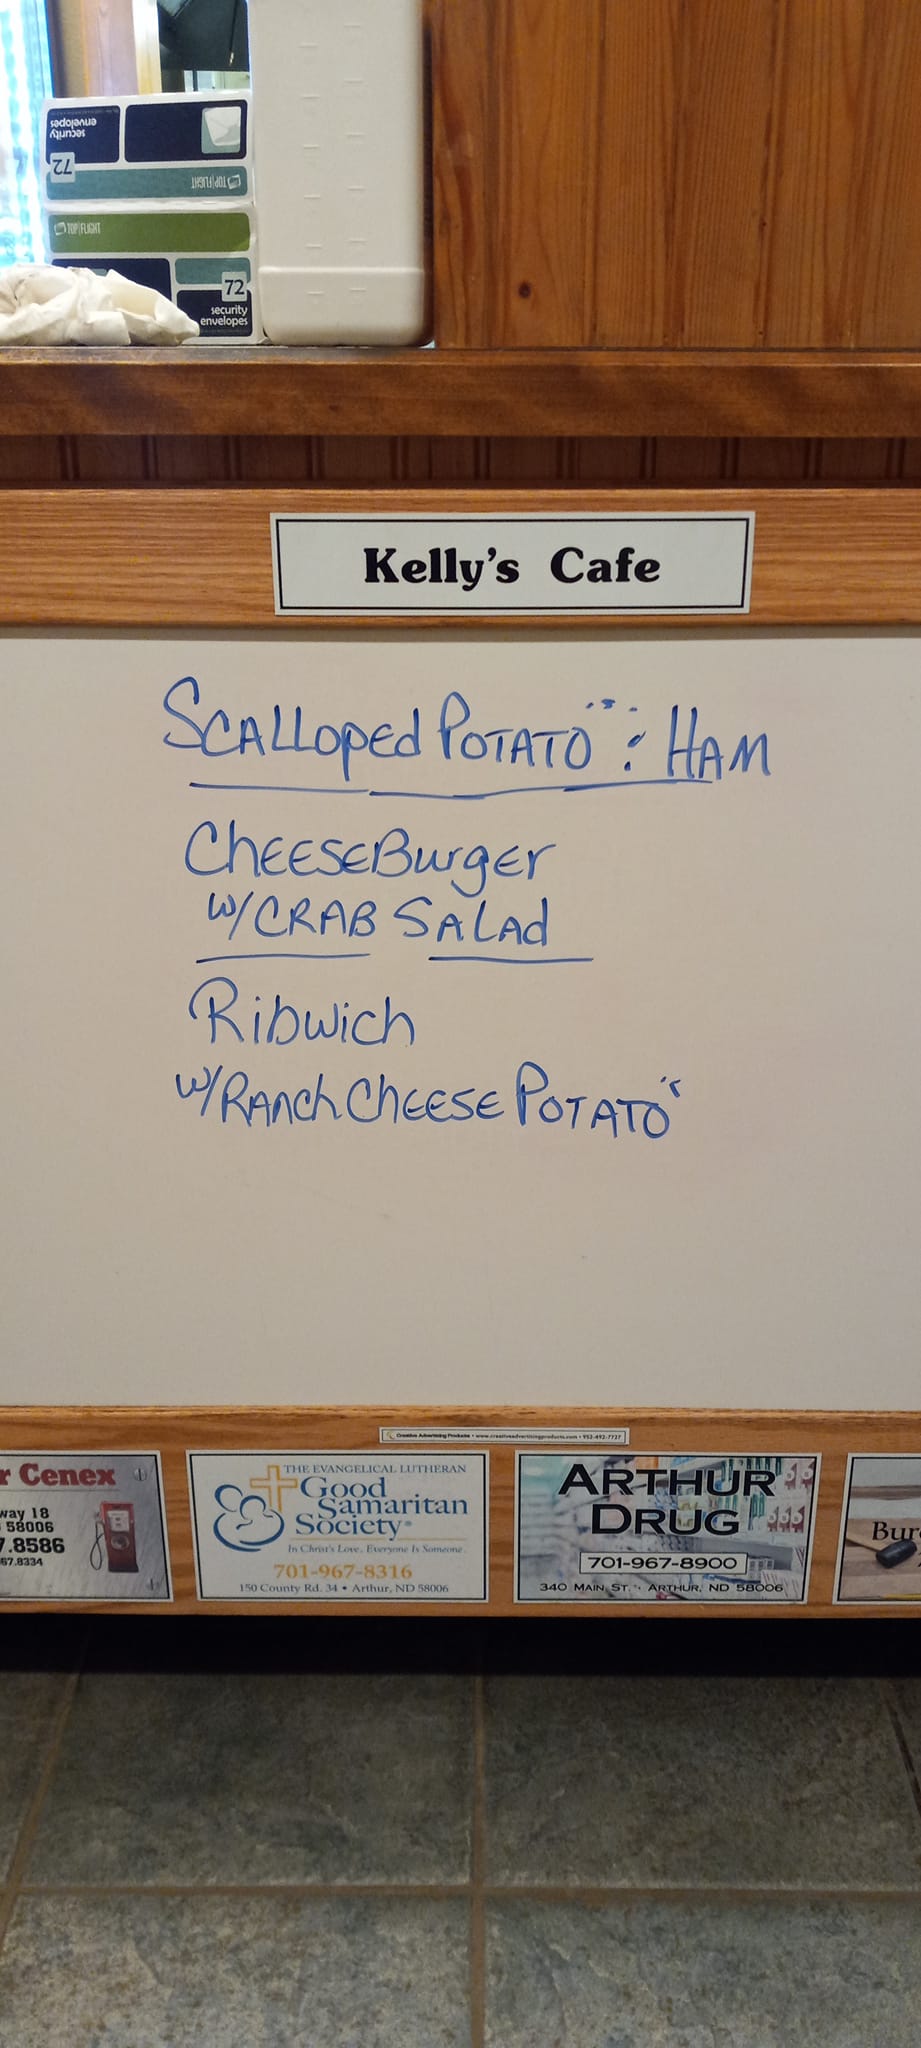 security
envelopes
72
TOP|FLIGHT
TOP|FLIGHT
72
security
envelopes
Kelly's Cafe
Scalloped Potato" : Ham
CheeseBurger
w/ Crab Salad
Ribwich
w/ Ranch Cheese Potato"
Creative Advertising Products • www.creativeadvertisingproducts.com • 952-492-7727
r Cenex
way 18
58006
7.8586
67.8334
THE EVANGELICAL LUTHERAN
Good
Samaritan
Society®
In Christ's Love, Everyone Is Someone.
701-967-8316
150 County Rd. 34 • Arthur, ND 58006
ARTHUR
DRUG
701-967-8900
340 MAIN ST. • ARTHUR, ND 58006
Bur